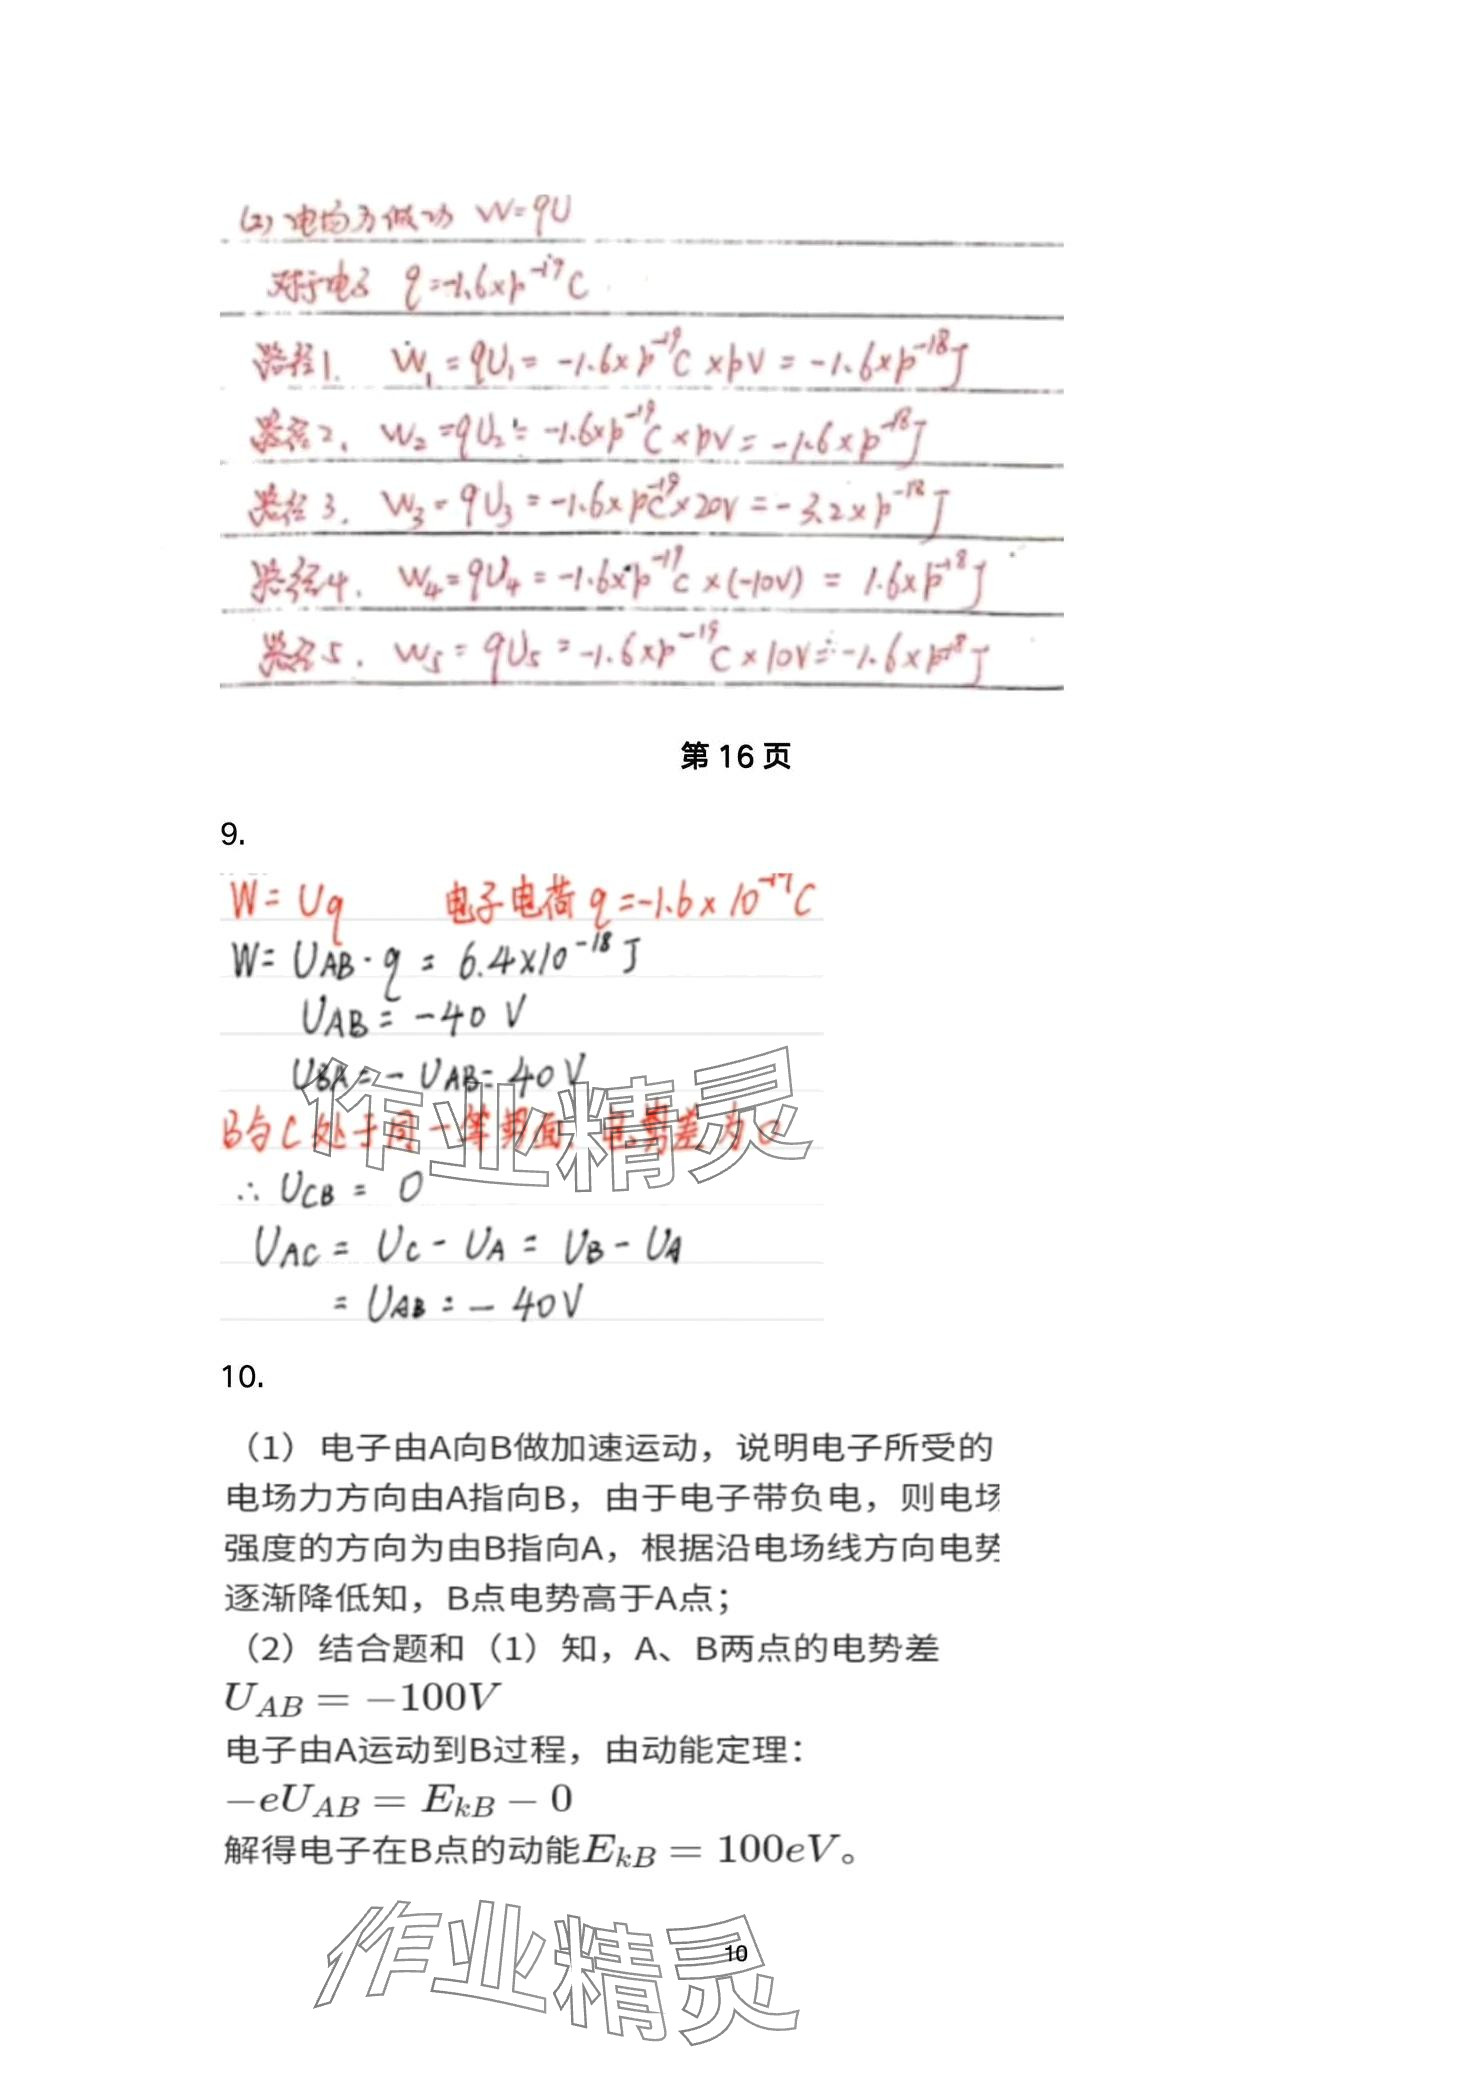 (2) 电场力做功 W=qU
对于电子 q=-1.6×10⁻¹⁹C
路径1. W₁=qU₁=-1.6×10⁻¹⁹C×10V=-1.6×10⁻¹⁸J
路径2. W₂=qU₂=-1.6×10⁻¹⁹C×10V=-1.6×10⁻¹⁸J
路径3. W₃=qU₃=-1.6×10⁻¹⁹C×20V=-3.2×10⁻¹⁸J
路径4. W₄=qU₄=-1.6×10⁻¹⁹C×(-10V)=1.6×10⁻¹⁸J
路径5. W₅=qU₅=-1.6×10⁻¹⁹C×10V=-1.6×10⁻¹⁸J
第 16 页
9.
W=Uq 电子电荷 q=-1.6×10⁻¹⁹C
W=U_AB·q=6.4×10⁻¹⁸J
U_AB=-40V
U_BA=-U_AB=40V
B与C处于同一等势面,电势差为0
∴ U_CB=0
U_AC=U_C-U_A=U_B-U_A
=U_AB=-40V
作业精灵
10.
（1）电子由A向B做加速运动，说明电子所受的
电场力方向由A指向B，由于电子带负电，则电场
强度的方向为由B指向A，根据沿电场线方向电势
逐渐降低知，B点电势高于A点；
（2）结合题和（1）知，A、B两点的电势差
U_AB=-100V
电子由A运动到B过程，由动能定理：
-eU_AB=E_kB-0
解得电子在B点的动能E_kB=100eV。
作业精灵
10